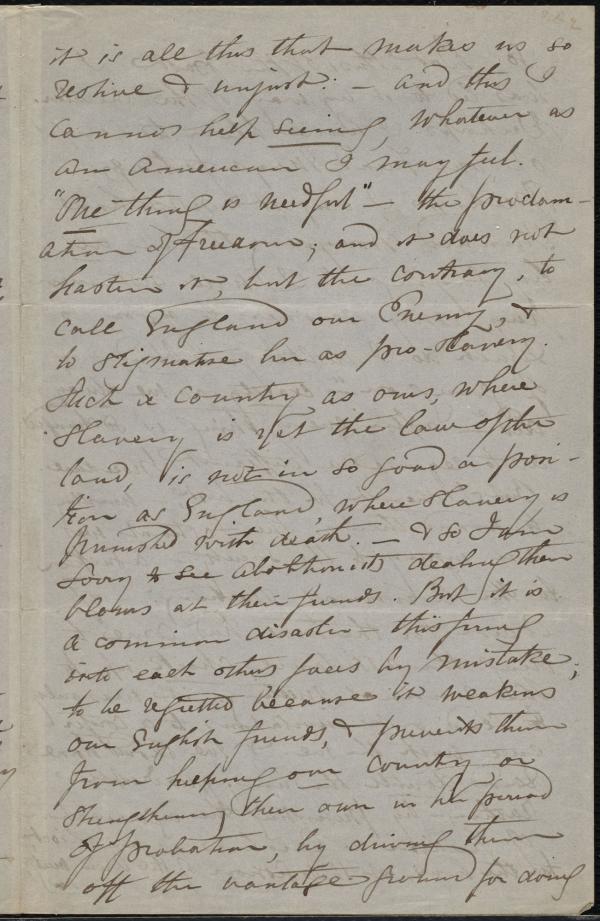 it is all this that makes us so
restive & unjust: — and this I
cannot help seeing, whatever as
an American I may feel.
"One thing is needful" — the proclam-
ation of freedom; and it does not
hasten it, but the contrary, to
call England our Enemy, &
to stigmatise her as pro-slavery.
Such a country as ours, where
Slavery is yet the law of the
land, is not in so good a posi-
tion as England, where slavery is
punished with death. — & so I am
sorry to see abolitionists dealing their
blows at their friends. But it is
a common disaster — this firing
into each others faces by mistake;
to be regretted because it weakens
our English friends, & prevents them
from helping our country or
strengthening their own in her period
of probation, by driving them
off the vantage ground for doing